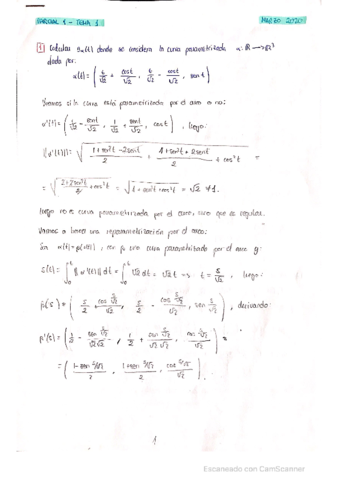 PARCIAL 1 - TEMA 1
MARZO 2020
1 Calcular τα(t) donde se considera la curva parametrizada α: ℝ → ℝ³
dada por:
α(t) = (t/√2 + cos t/√2, t/√2 - cos t/√2, sen t)
Veamos si la curva está parametrizada por el arco o no:
α'(t) = (1/√2 - sen t/√2, 1/√2 + sen t/√2, cos t), luego
||α'(t)|| = √((1 + sen²t - 2sen t)/2 + (1 + sen²t + 2sen t)/2 + cos²t) =
= √((2 + 2sen²t)/2 + cos²t) = √(1 + sen²t + cos²t) = √2 ≠ 1.
luego no es curva parametrizada por el arco, sino que es regular.
Vamos a hacer una reparametrización por el arco:
Sea α(t) = β(s(t)), con β una curva parametrizada por el arco
s(t) = ∫₀ᵗ ||α'(t)|| dt = ∫₀ᵗ √2 dt = √2 t → t = s/√2, luego:
β(s) = (s/2 + cos s/√2/√2, s/2 - cos s/√2/√2, sen s/√2), derivando
β'(s) = (1/2 - sen s/√2/√2√2, 1/2 + sen s/√2/√2√2, cos s/√2/√2) =
= ((1 - sen s/√2)/2, (1 + sen s/√2)/2, cos s/√2/√2).
1
Escaneado con CamScanner